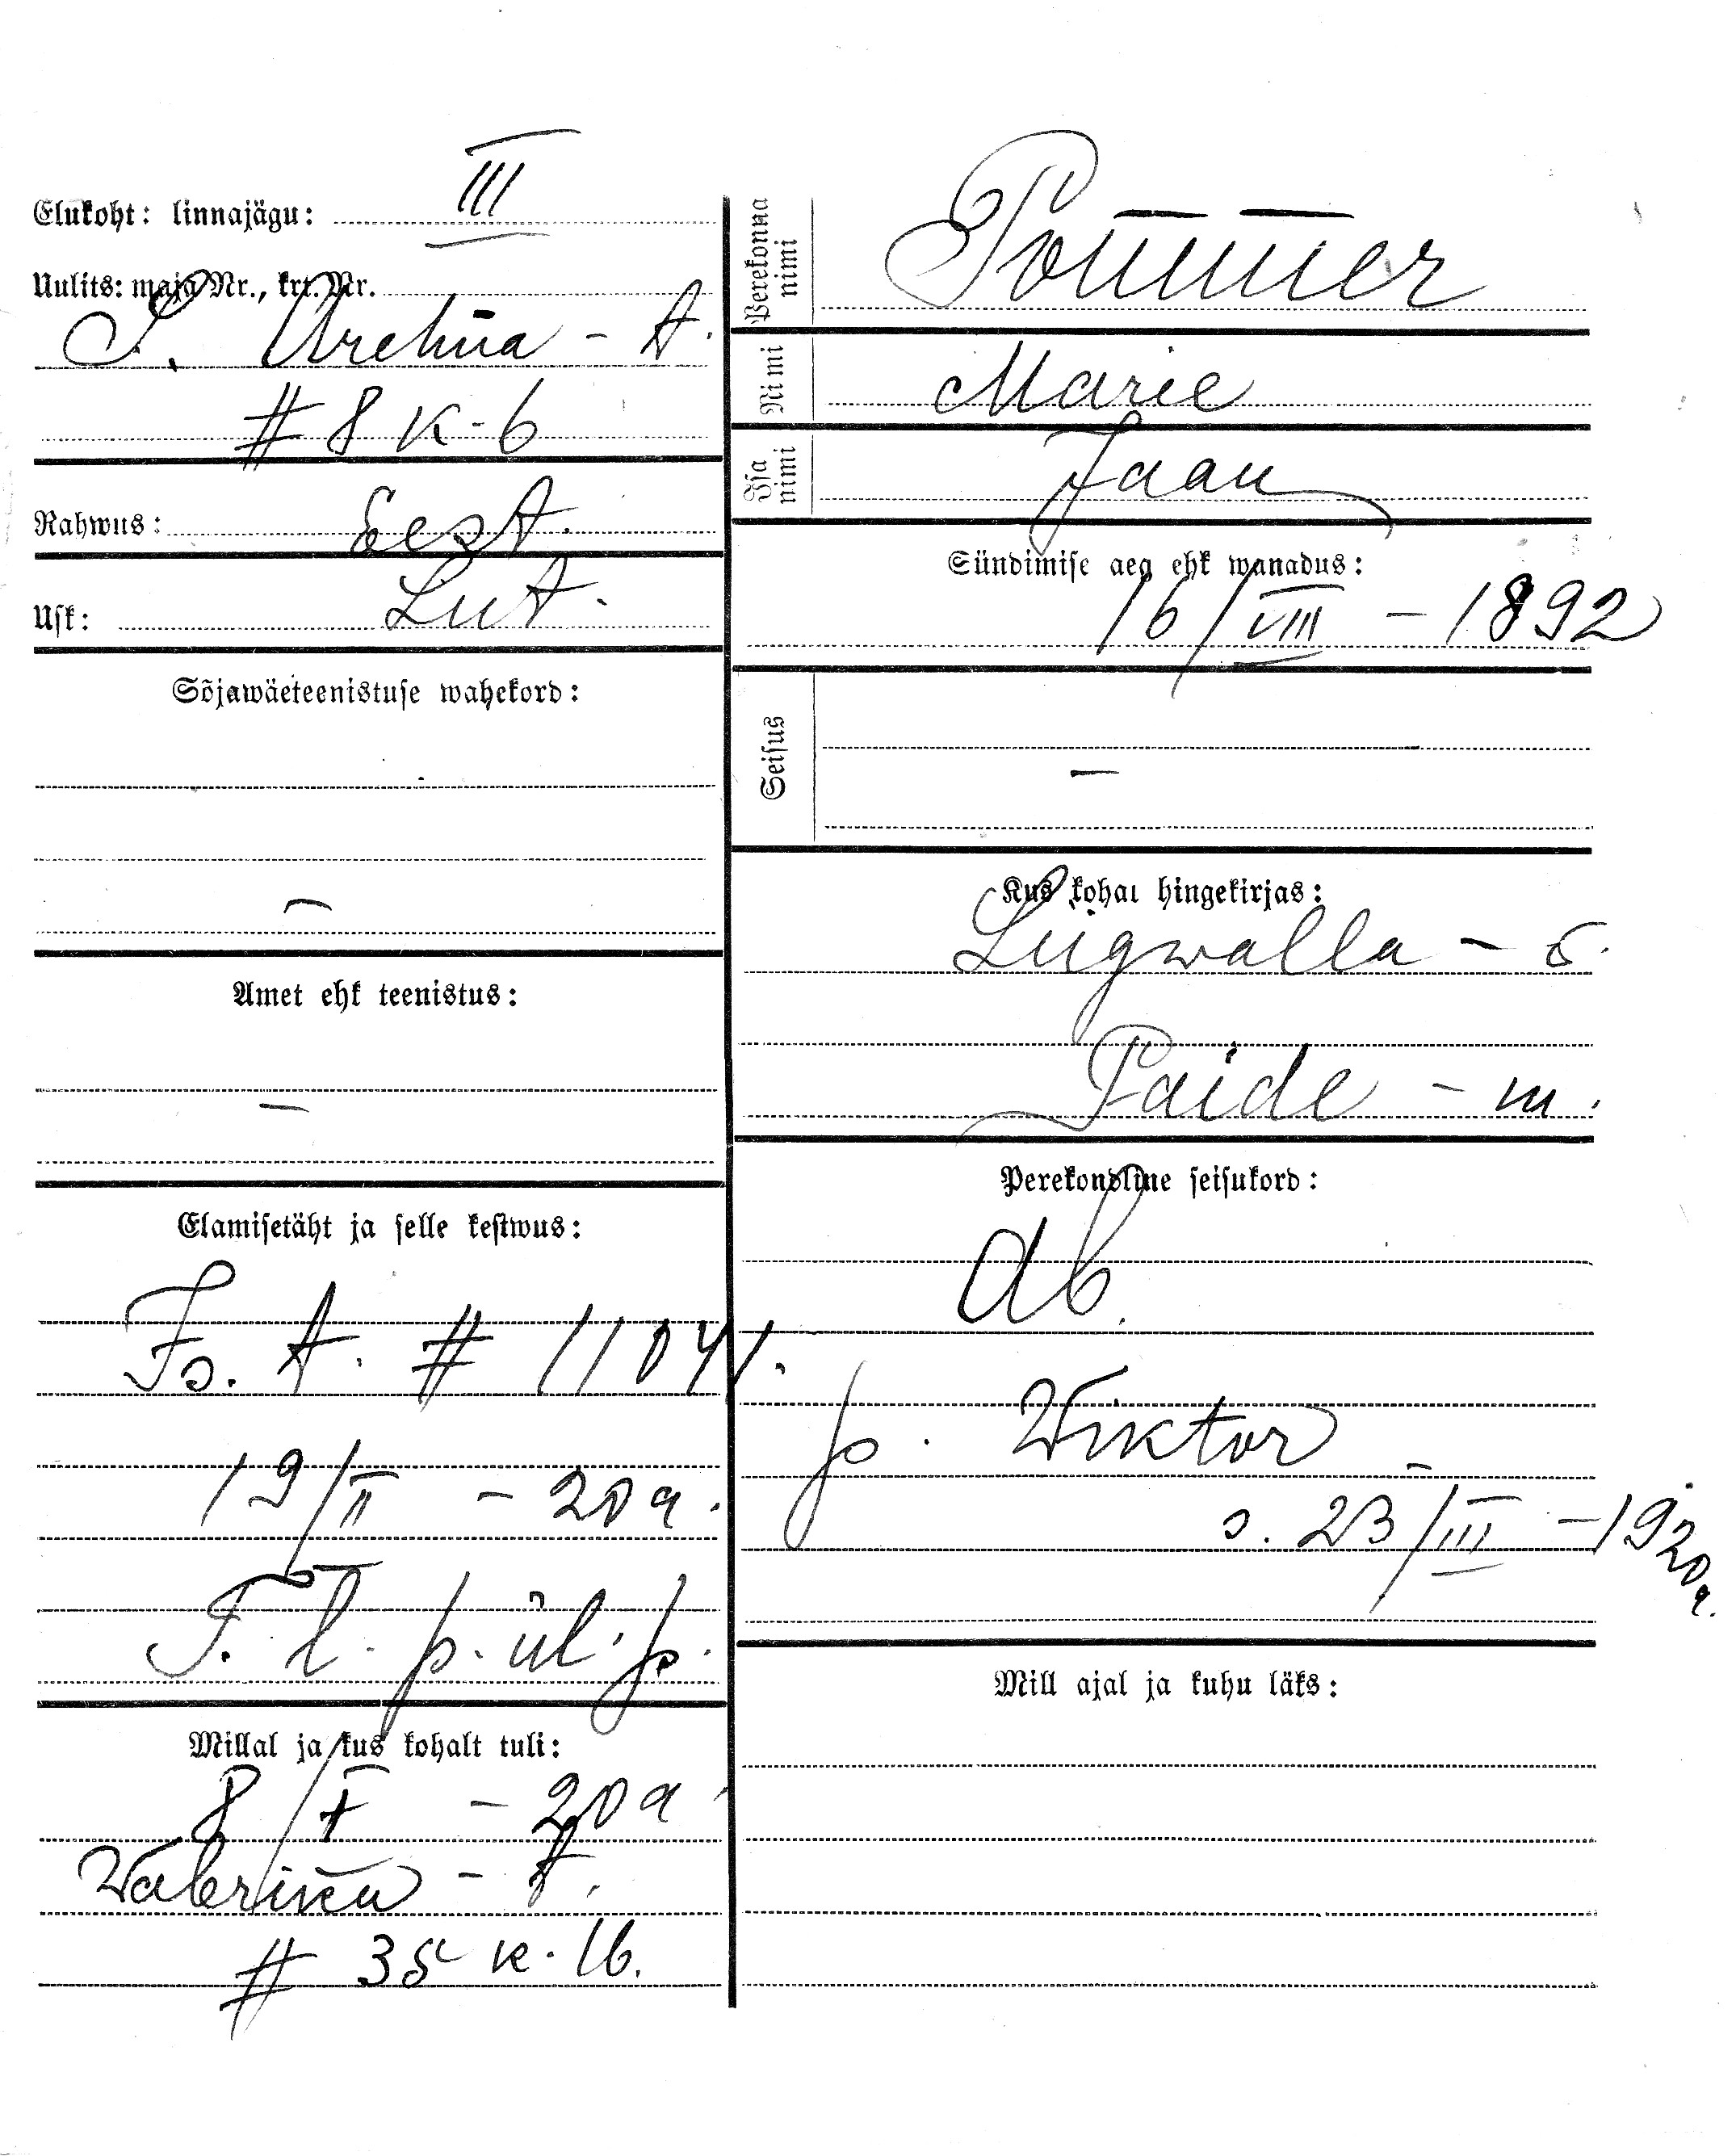 Elukoht: linnajägu: III
Uulits: maja Nr., krt. Nr.
# 8 k-6
Rahwus: Eest.
Usk: Lut.
Sõjawäeteenistuse wahekord:
—
Amet ehk teenistus:
—
Elamisetäht ja selle kestwus:
Is. t. # 11041.
19/II - 20 a.
T. l. p. ül. p.
Millal ja kus kohalt tuli:
- 20 a.
Wabriku - t.
# 35 k. 16.
Perekonna nimi
Nimi Marie
Isa nimi Jaan
Sündimise aeg ehk wanadus:
16/VIII - 1892
Seisus —
Kus kohal hingekirjas:
Paide - m.
Perekondline seisukord:
Ab.
p. Wiktor -
s. 23/III - 1920 a.
Mill ajal ja kuhu läks: